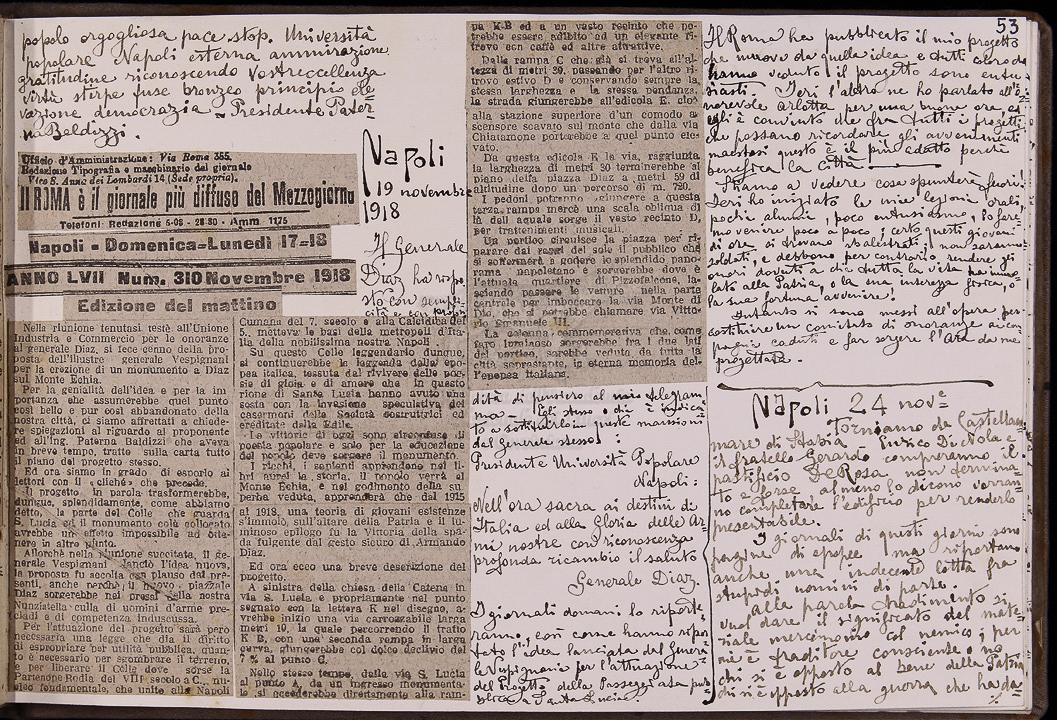 53
popolo orgogliosa pace stop. Università
popolare Napoli esterna ammirazione
gratitudine riconoscendo Vostreccellenza
virtù stirpe fuse bronzeo principio ele=
vazione democrazia - Presidente Pater=
na Baldizzi.
Ufficio d'Amministrazione: Via Roma 355.
Redazione Tipografia e macchinario del giornale
Vico S. Anna dei Lombardi 14 (Sede propria).
Il ROMA è il giornale più diffuso del Mezzogiorno
Telefoni: Redazione 5-08 - 28-80 - Amm. 1175
Napoli - Domenica-Lunedì 17-18
ANNO LVII Num. 310 Novembre 1918
Edizione del mattino
Napoli
19 novembre
1918
Il Generale
Diaz ha rispo=
sto con sempli=
cità e con
Nella riunione tenutasi testè all'Unione
Industria e Commercio per le onoranze
al generale Diaz, si fece cenno della pro-
posta dell'illustre generale Vespignani
per la erezione di un monumento a Diaz
sul Monte Echia.
Per la genialità dell'idea e per la im-
portanza che assumerebbe quel punto
così bello e pur così abbandonato della
nostra città, ci siamo affrettati a chiede-
re spiegazioni al riguardo al proponente
ed all'ing. Paterna Baldizzi che aveva
in breve tempo, tratto sulla carta tutto
il piano del progetto stesso.
Ed ora siamo in grado di esporlo ai
lettori con il «clichè» che precede.
Il progetto in parola trasformerebbe,
dunque, splendidamente, come abbiamo
detto, la parte del Colle che guarda
S. Lucia ed il monumento colà collocato
avrebbe un effetto impossibile ad otte-
nere in altro punto.
Allorchè nella riunione succitata, il ge-
nerale Vespignani lanciò l'idea nuova,
la proposta fu accolta con plauso dai pre-
senti, anche perchè il nuovo piazzale
Diaz sorgerebbe nei pressi della nostra
Nunziatella culla di uomini d'arme pre-
clari e di competenza indiscussa.
Per l'attuazione del progetto sarà però
necessaria una legge che dia il diritto
di espropriare per utilità pubblica, quan-
to è necessario per sgombrare il terreno,
e per liberare il Colle dove sorse la
Partenope Rodia del VIII secolo a C., nu-
cleo fondamentale, che unito alla Napoli
Cumana del 7. secolo e alla Calcidica del
5., metteva le basi della metropoli d'Ita-
lia della nobilissima nostra Napoli.
Su questo Colle leggendario dunque
si continuerebbe la leggenda delle epo-
pea italica, tessuta dal rivivere delle poe-
sie di gioia e di amore che in questo
rione di Santa Lucia hanno avuto una
sosta con la invasione speculativa dei
casermoni delle Società costruttrici ed
ereditate della Edile.
Le vittorie di oggi sono circonfuse di
poesia popolare e solo per la educazione
del popolo deve sorgere il monumento.
I ricchi, i sapienti apprendono nei li-
bri aurei la storia, il popolo verrà al
Monte Echia, e nel godimento della su-
perba veduta, apprenderà che dal 1915
al 1918, una teoria di giovani esistenze
s'immolò, sull'altare della Patria e il lu-
minoso epilogo fu la Vittoria della spa-
da fulgente dal gesto sicuro di Armando
Diaz.
Ed ora ecco una breve descrizione del
progetto.
A sinistra della chiesa della Catena in
via S. Lucia e propriamente nel punto
segnato con la lettera K nel disegno, a-
vrebbe inizio una via carrozzabile larga
metri 10, la quale percorrendo il tratto
K B, con una seconda rampa in larga
curva, giungerebbe col dolce declivio del
7 % al punto C.
Nello stesso tempo, dalla via S. Lucia
al punto A, da un ingresso monumenta-
le si accederebbe direttamente alla ram-
pa K-B ed a un vasto recinto che po-
trebbe essere adibito ad un elegante ri-
trovo con caffè ed altre attrative.
Dalla rampa C che già si trova all'al-
tezza di metri 20, passando per l'altro ri-
trovo estivo D e conservando sempre la
stessa larghezza e la stessa pendanza,
la strada giungerebbe all'edicola E, cioè
alla stazione superiore d'un comodo a-
scensore scavato sul monte che dalla via
Chiatamone porterebbe a quel punto ele-
vato.
Da questa edicola E la via, raggiunta
la larghezza di metri 30 terminerebbe al
piano della piazza Diaz a metri 59 di
altitudine dopo un percorso di m. 720.
I pedoni potranno giungere a questa
terza rampa mercè una scala obliqua al
di là dell aquale sorge il vasto recinto D,
per trattenimenti musicali.
Un portico circuisce la piazza per ri-
parare dai raggi del sole il pubblico che
si soffermerà a godere lo splendido pano-
rama napoletano e sorgerebbe dove è
l'attuale quartiere di Pizzofalcone, la-
sciando passare le vetture nella parte
centrale per imboccare la via Monte di
Dio, che si potrebbe chiamare via Vitto-
rio Emanuele III.
La colonna commemorativa che come
faro luminoso sorgerebbe fra i due lati
del portico, sarebbe veduta da tutta la
città soprastante, in eterna memoria del-
l'epopea italiana.
dità di pensiero al mio telegram
ma - Egli stesso
del Generale stesso!
Presidente Università Popolare
Napoli:
Nell'ora sacra ai destini di
Italia ed alla Gloria delle Ar=
mi nostre con riconoscenza
profonda ricambio il saluto
Generale Diaz.
I giornali domani lo riporte
ranno, così come hanno ripor
tato l'idea lanciata dal Genera
le Vespignani per l'attuazione
del Progetto della Passeggiata pub
blica a Santa Lucia.
Il Roma ha pubblicato il mio progetto
che muove da quella idea e tutti coloro che
hanno veduto il progetto sono entu=
siasti. Ieri l'altro ne ho parlato all'o=
norevole Arlotta per una buona ora ed
egli è convinto che fra tutti i progetti
che possano ricordare gli avvenimenti
maestosi questo è il più adatto perchè
benefica la città.
Stiamo a vedere cosa spunterà fuori!
Ieri ho iniziato le mie lezioni orali,
pochi alunni, poco entusiasmo. Lo fare
mo venire poco a poco; certo questi giovani
di ora si trovano sbalestrati; non saranno
soldati, e debbono per contrario rendere gli
onori dovuti a chi tutta la vita ha immo
lato alla Patria, o la sua interezza fisica, o
la sua fortuna avvenire!
Intanto si sono messi all'opera per
costituire un comitato di onoranze ai com
pagni caduti e far sorgere l'Ara da me
progettata.
Napoli 24 nov.e
Torniamo da Castellam
mare di Stabia - Enrico Di Nola e
il fratello Gerardo compreranno il
pastificio De Rosa non termina
to e forse, almeno lo dicono, vorran=
no completare l'edificio per renderlo
presentabile.
I giornali di questi giorni sono
pagine di epopee ma riportano
anche una indecente lotta fra
stupidi uomini di parte.
Alla parola tradimento si
vuol dare il significato del mate=
riale mercimonio col nemico; per
me è traditore cosciente o no
chi si è opposto al bene della Patria
chi si è opposto alla guerra che ha da=